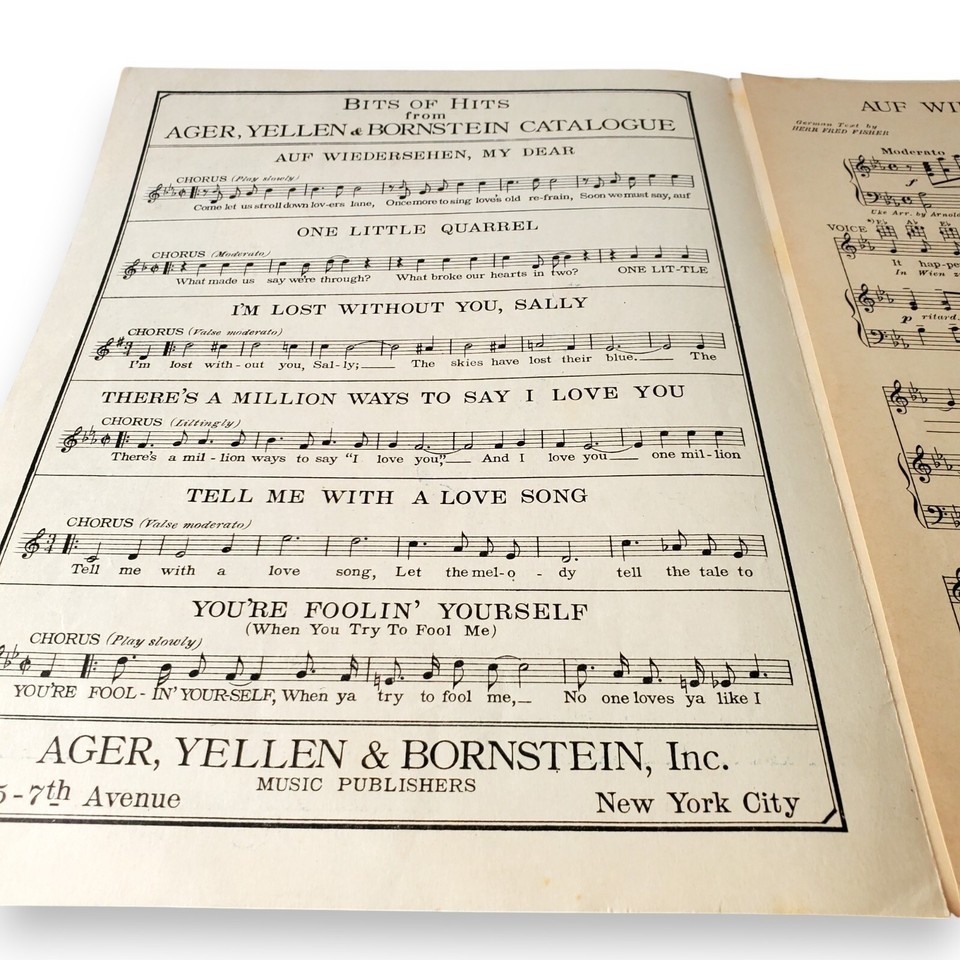 BITS OF HITS
from
AGER, YELLEN & BORNSTEIN CATALOGUE
AUF WIEDERSEHEN, MY DEAR
CHORUS (Play slowly)
Come let us stroll down lov-ers lane, Once more to sing love's old re-frain, Soon we must say, auf
ONE LITTLE QUARREL
CHORUS (Moderato)
What made us say we're through? What broke our hearts in two? ONE LIT-TLE
I'M LOST WITHOUT YOU, SALLY
CHORUS (Valse moderato)
I'm lost with-out you, Sal-ly; The skies have lost their blue. The
THERE'S A MILLION WAYS TO SAY I LOVE YOU
CHORUS (Liltingly)
There's a mil-lion ways to say "I love you," And I love you one mil-lion
TELL ME WITH A LOVE SONG
CHORUS (Valse moderato)
Tell me with a love song, Let the mel-o-dy tell the tale to
YOU'RE FOOLIN' YOURSELF
(When You Try To Fool Me)
CHORUS (Play slowly)
YOU'RE FOOL-IN' YOUR-SELF, When ya try to fool me, No one loves ya like I
AGER, YELLEN & BORNSTEIN, Inc.
MUSIC PUBLISHERS
5-7th Avenue New York City
AUF WI
German Text by
HERR FRED FISHER
Moderato
Uke Arr. by Arnol
VOICE
It hap-pe
In Wien
p ritard.